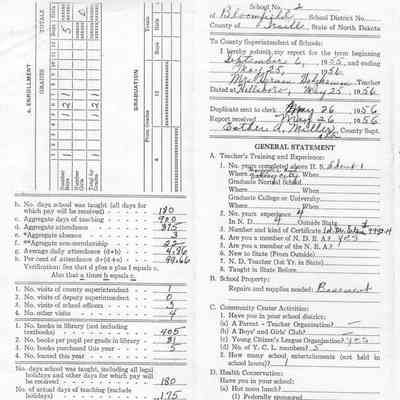 School No. 2
of Bloomfield, School District No.
County of Traill, State of North Dakota
To County Superintendent of Schools:
I hereby submit my report for the term beginning
September 6, 1955, and ending
May 25, 1956.
Teacher
Dated at Hillsboro, May 25, 1956
Duplicate sent to clerk May 26 1956
Report received May 26 1956
Esther A. Miller, County Supt.
GENERAL STATEMENT
A. Teacher's Training and Experience:
1. No. years completed above H. S.
Where Valley City When
Graduate Normal School
Where When
Graduate College or University
Where When
2. No. years experience 4
In N. D. 4 Outside State
3. Number and kind of Certificate
4. Are you a member of N. D. E. A.? yes
5. Are you a member of the N. E. A.?
6. New to State (From Outside)
7. N. D. Teacher (1st Yr. in State)
8. Taught in State Before
B. School Property:
Repairs and supplies needed: Basement
C. Community Center Activities:
1. Have you in your district:
(a) A Parent - Teacher Organization?
(b) A Boys' and Girls' Club?
(c) Young Citizen's League Organization? yes
(d) No. of Y. C. L. members?
2. How many school entertainments (not held in
school hours)? 1
D. Health Conservation:
1. Have you in your school:
(a) Hot noon lunch?
(1) Federally sponsored
a. ENROLLMENT
GRADES
TOTALS
GRADUATION
From Grades
Totals
Number Boys
Number Girls
Total for Grades
b. No. days school was taught (all days for
which pay will be received) 180
c. Aggregate days of teaching 900
d. Aggregate attendance 875
e. *Aggregate absence
f. **Aggregate non-membership 22
g. Average daily attendance (d÷b) 4.86
h. Per cent of attendance (d÷(d+e)) 99.66
Verification: See that d plus e plus f equals c.
Also that a times b equals c.
1. No. visits of county superintendent 1
2. No. visits of deputy superintendent 0
3. No. visits of school officers 3
4. No. other visits 4
1. No. books in library (not including
textbooks) 405
2. No. books per pupil per grade in library 81
3. No. books purchased this year 5
4. No. loaned this year
No. days school was taught, including all legal
holidays and other days for which pay will
be received 180
No. of actual days of teaching (exclude
holidays) 175